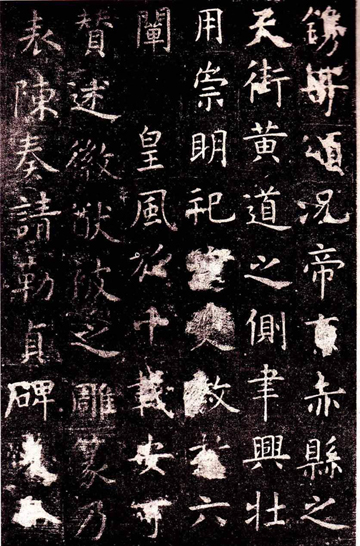 鐫頌況帝京赤縣之
天街黃道之側聿興壯
用崇明祀文教於六
闡皇風於千載安可
贊述徽猷被之雕篆乃
表陳奏請勒貞碑